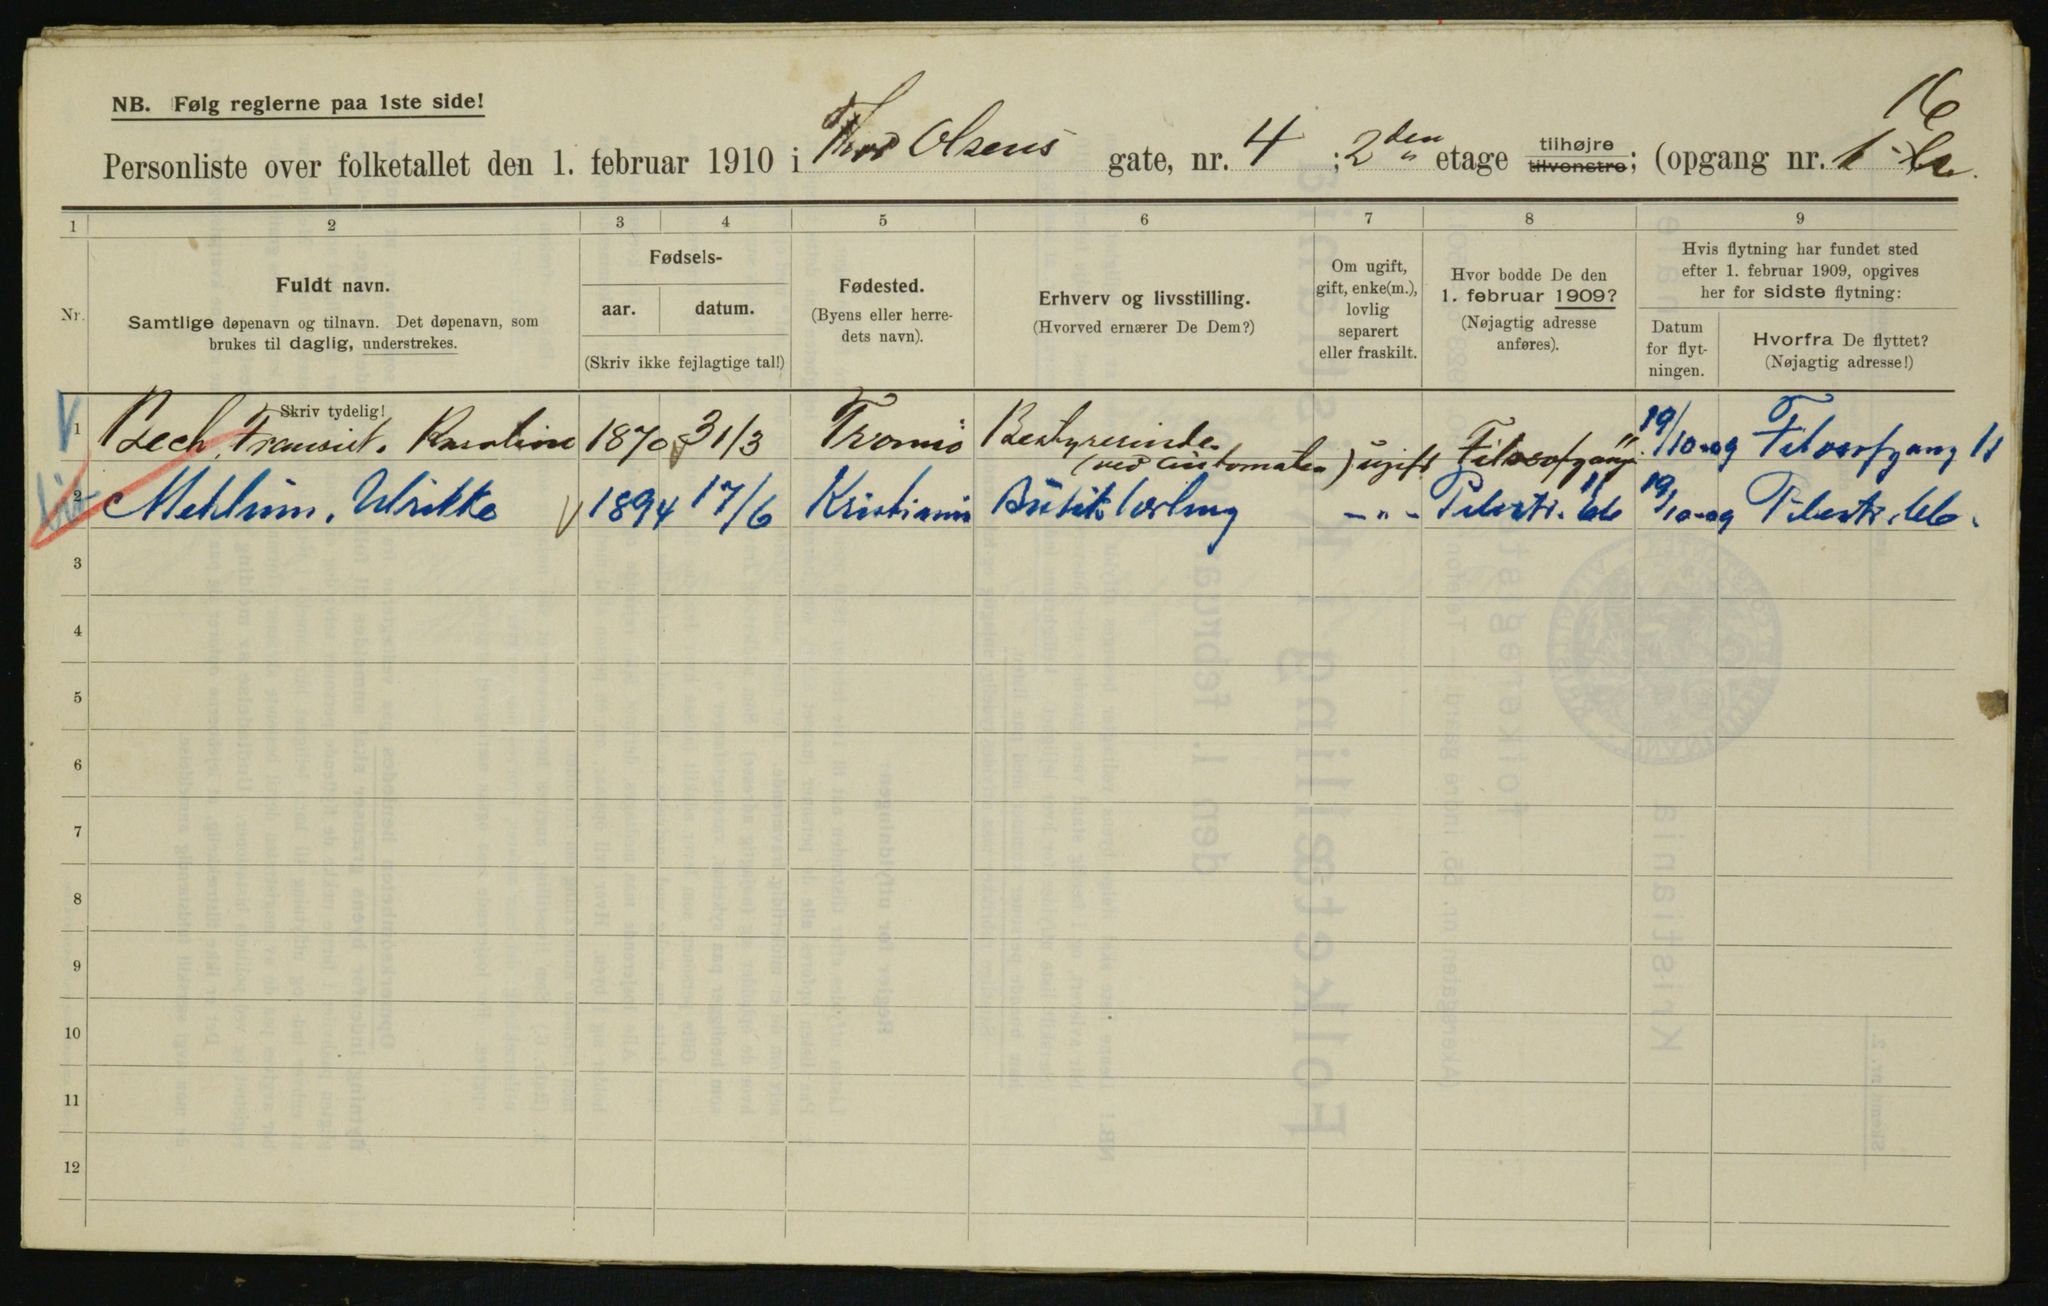 16
NB. Følg reglerne paa 1ste side!
Personliste over folketallet den 1. februar 1910 i Thvd Olsens gate, nr. 4 ; 2den etage tilhøjre tilvenstre; (opgang nr. 1
1 2 3 4 5 6 7 8 9
Nr.
Fuldt navn.
Samtlige døpenavn og tilnavn. Det døpenavn, som
brukes til daglig, understrekes.
Fødsels-
aar. datum.
(Skriv ikke fejlagtige tal!)
Fødested.
(Byens eller herre-
dets navn).
Erhverv og livsstilling.
(Hvorved ernærer De Dem?)
Om ugift,
gift, enke(m.),
lovlig
separert
eller fraskilt.
Hvor bodde De den
1. februar 1909?
(Nøjagtig adresse
anføres).
Hvis flytning har fundet sted
efter 1. februar 1909, opgives
her for sidste flytning:
Datum
for flyt-
ningen.
Hvorfra De flyttet?
(Nøjagtig adresse!)
Skriv tydelig!
1 Bech, Karoline 1870 31/3 Tromsø Bestyrerinde (ved Automaten) ugift Filosofgang 11 19/10-09 Filosofgang 11
2 Mehlum, Ulrikke 1894 17/6 Kristiania Butik lærling -"- Pilestr. 66 19/10-09 Pilestr. 66.
3
4
5
6
7
8
9
10
11
12